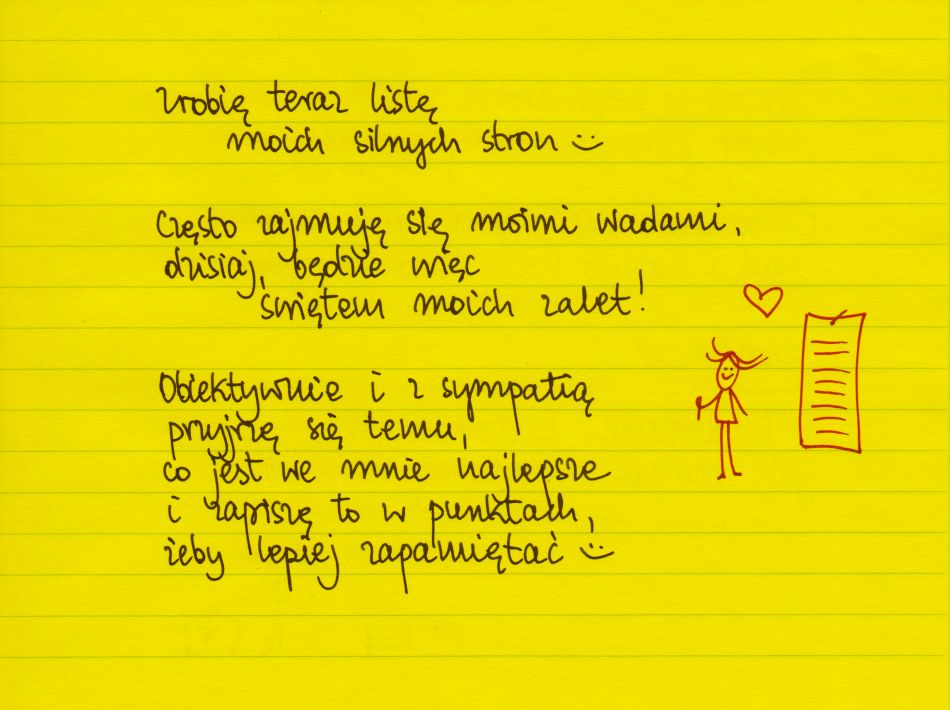 Zrobię teraz listę
moich silnych stron :)
Często zajmuję się moimi wadami,
dzisiaj, będzie więc
świętem moich zalet!
Obiektywnie i z sympatią
przyjrzę się temu,
co jest we mnie najlepsze
i zapiszę to w punktach,
żeby lepiej zapamiętać :)